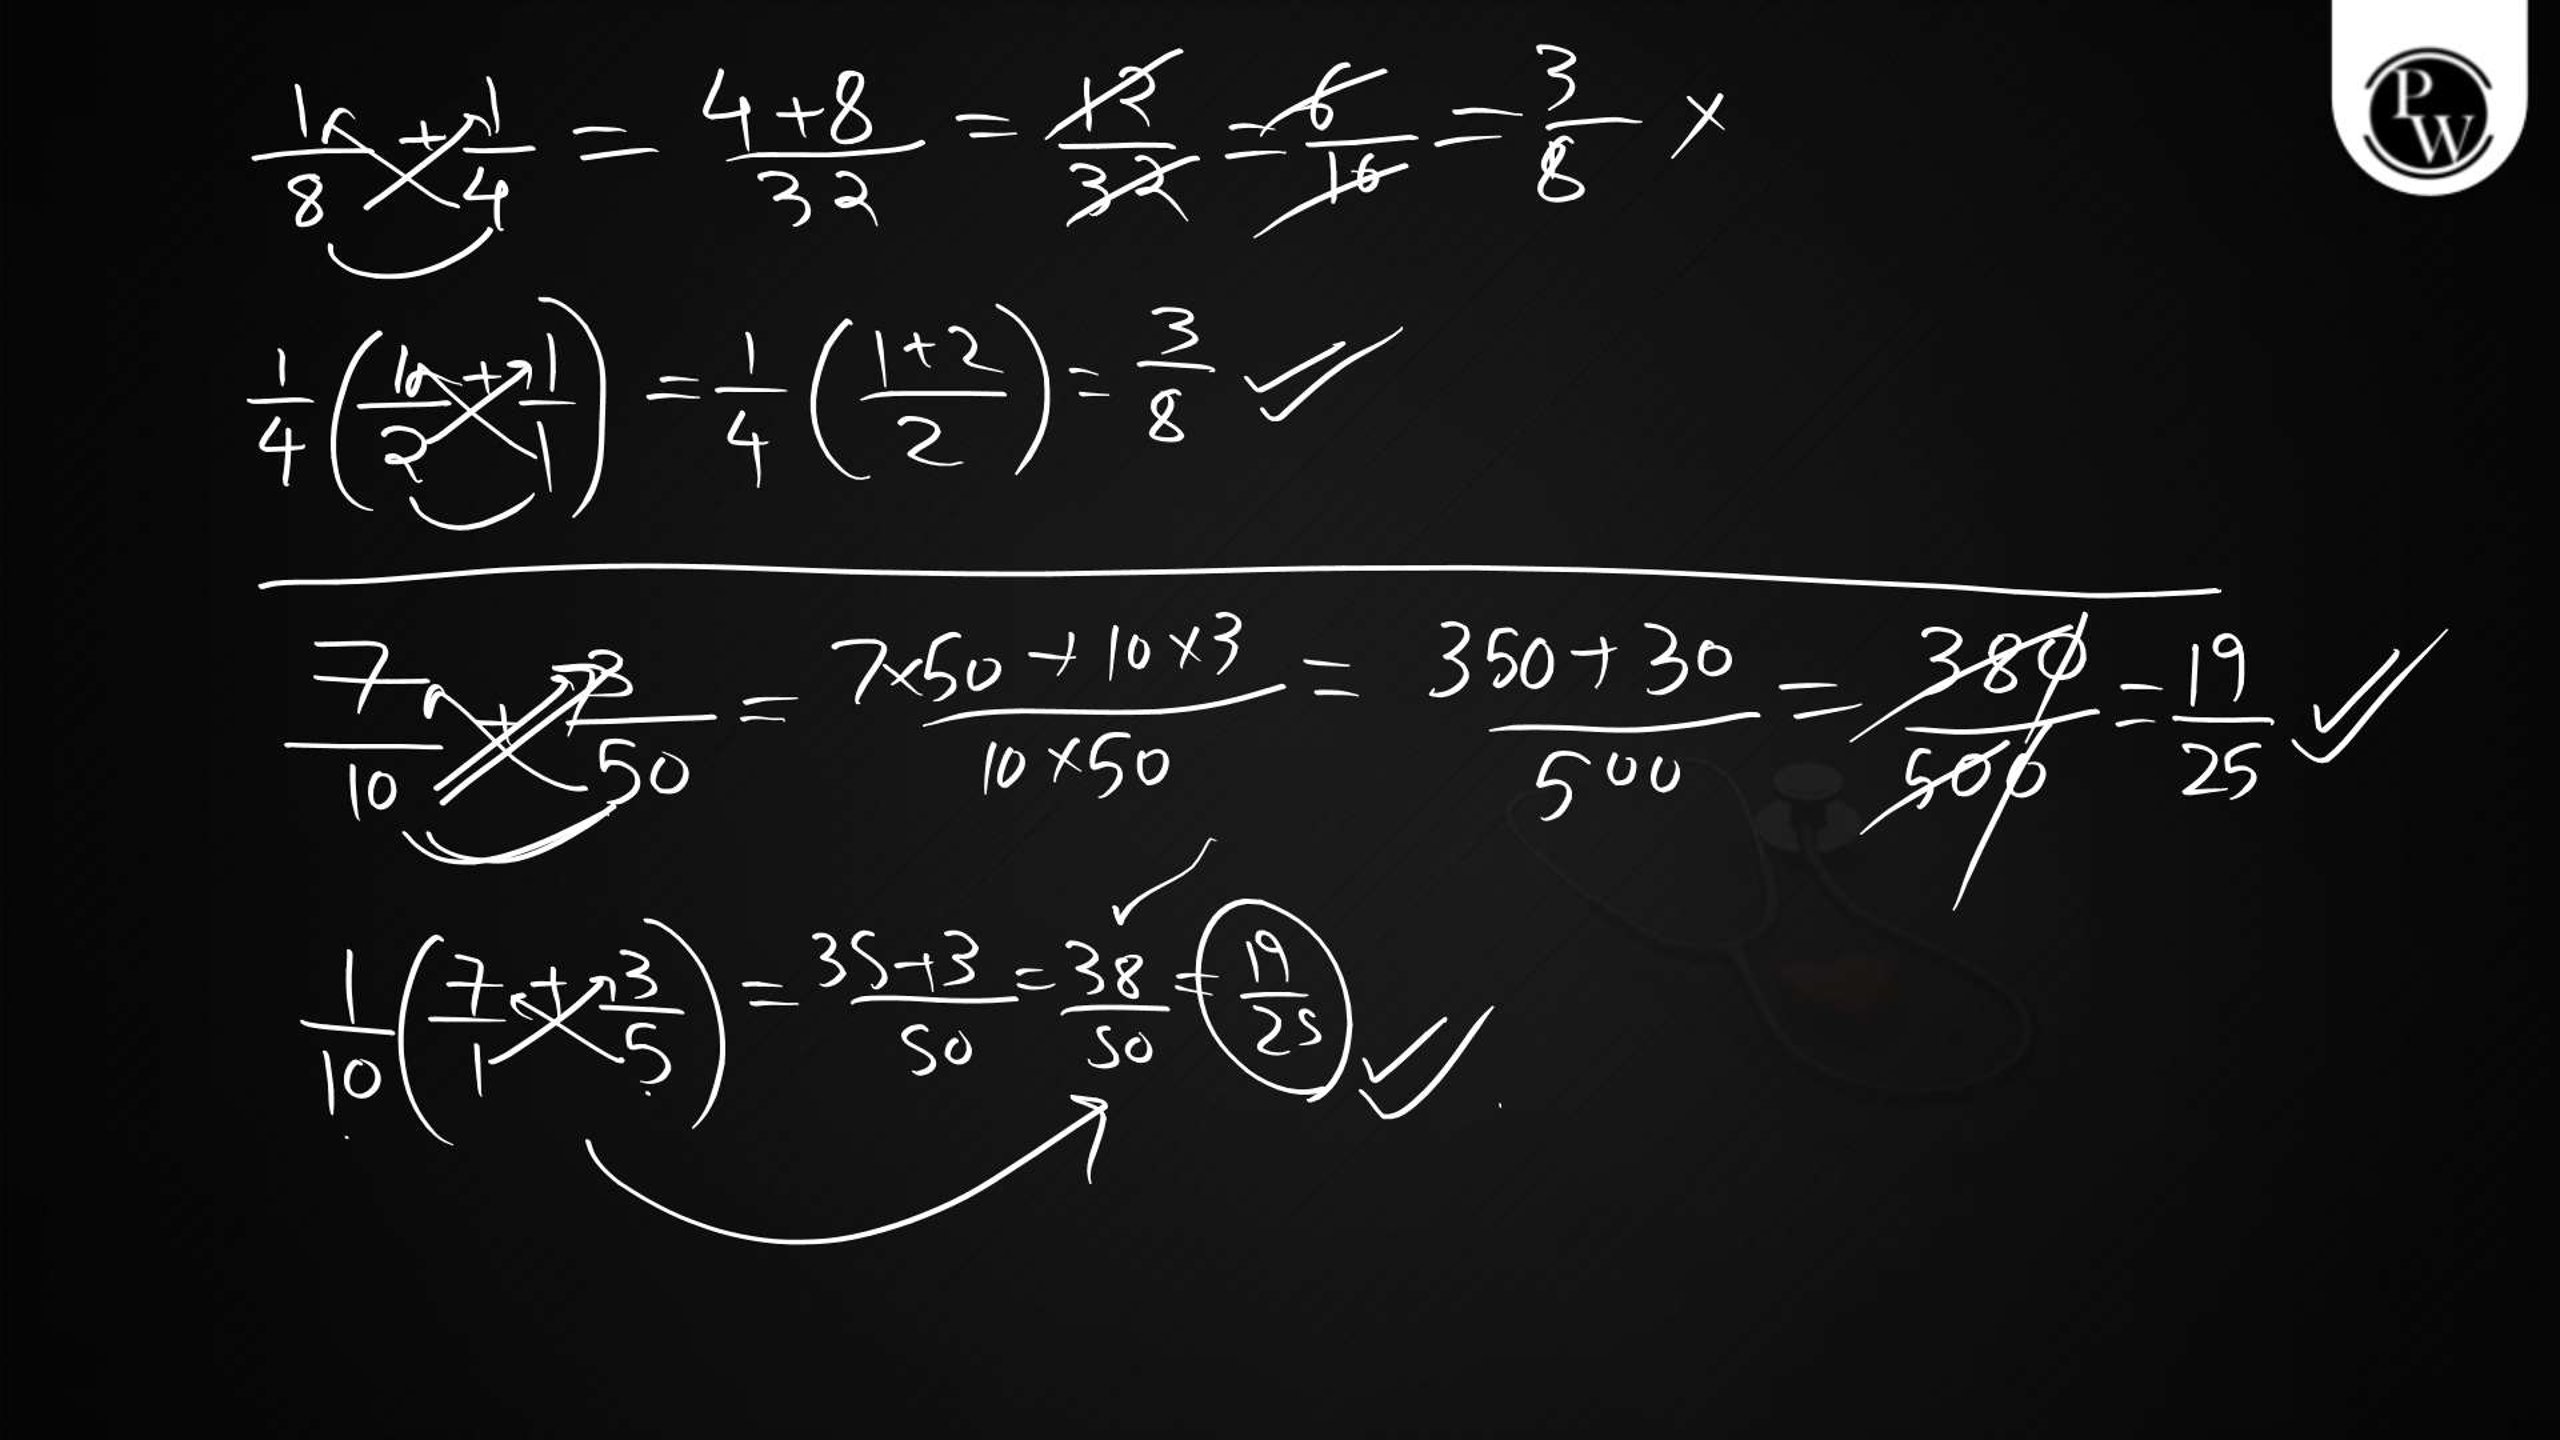 PW
1/8 + 1/4 = 4+8/32 = 12/32 = 6/16 = 3/8 ×
1/4 (1/2 + 1/1) = 1/4 (1+2/2) = 3/8 ✓
7/10 + 3/50 = 7×50+10×3/10×50 = 350+30/500 = 380/500 = 19/25 ✓
1/10 (7/1 + 3/5) = 35+3/50 = 38/50 = 19/25 ✓